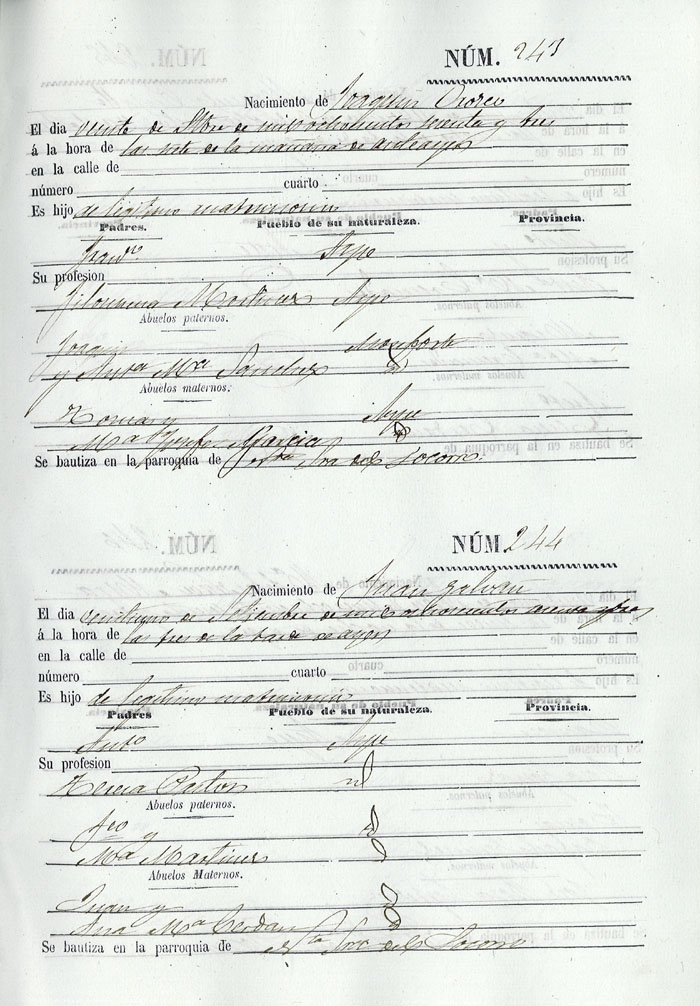 NÚM. 243
Nacimiento de Joaquin
El dia veinte de Stbre de mil ochocientos setenta y tres
á la hora de las siete de la mañana de
en la calle de
número cuarto
Es hijo de legitimo matrimonio
Padres. Pueblo de su naturaleza. Provincia.
Aspe
Su profesion
Filomena Martinez Aspe
Abuelos paternos.
Joaquin Monforte
y Anta Mra Sanchez id
Abuelos maternos.
Tomas y Aspe
Ma Josefa Garcia id
Se bautiza en la parroquia de Ntra Sra del Socorro.
NÚM. 244
Nacimiento de Juan Galvan
El dia veintiuno de Setiembre de mil ochocientos setenta y tres
á la hora de las tres de la tarde de ayer
en la calle de
número cuarto
Es hijo de legitimo matrimonio
Padres Pueblo de su naturaleza. Provincia.
Anto Aspe
Su profesion
Teresa Pastor id
Abuelos paternos.
Fco y id
Ma Martinez id
Abuelos Maternos.
Juan y id
Ana Ma Cerdan id
Se bautiza en la parroquia de Nta Sra del Socorro